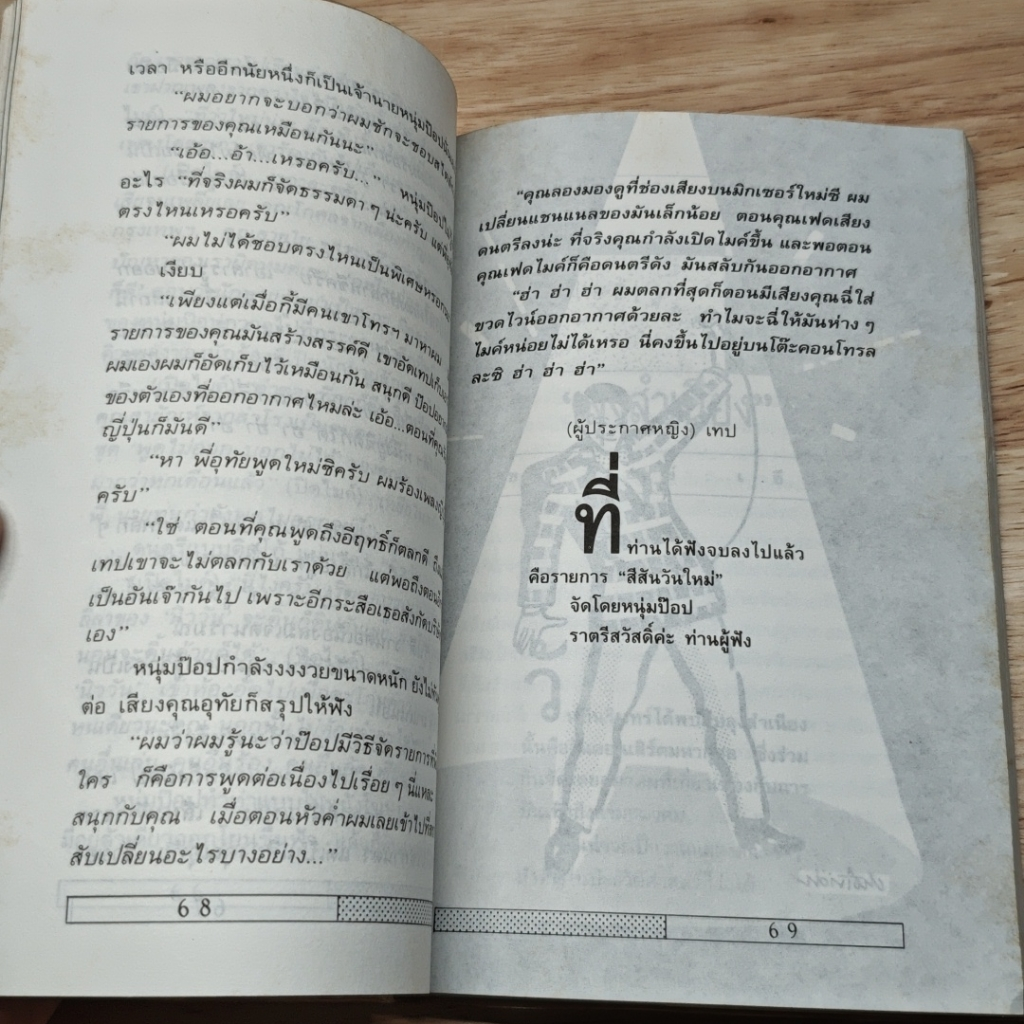 เวลา หรืออีกนัยหนึ่งก็เป็นเจ้านายหนุ่มป๊อป
“ผมอยากจะบอกว่าผมชักจะชอบ
รายการของคุณเหมือนกันนะ”
“เอ้อ...อ้า...เหรอครับ...” หนุ่มป๊อป
อะไร “ที่จริงผมก็จัดธรรมดา ๆ น่ะครับ
ตรงไหนเหรอครับ”
“ผมไม่ได้ชอบตรงไหนเป็นพิเศษหรอก
เงียบ
“เพียงแต่เมื่อกี้มีคนเขาโทรฯ มาหาผม
รายการของคุณมันสร้างสรรค์ดี เขาอัดเทป
ผมเองผมก็อัดเก็บไว้เหมือนกัน สนุกดี ป๊อป
ของตัวเองที่ออกอากาศไหมล่ะ เอ้อ...ตอนที่คุณ
ญี่ปุ่นก็มันดี”
“หา พี่อุทัยพูดใหม่ซิครับ ผมร้องเพลง
ครับ”
“ใช่ ตอนที่คุณพูดถึงอีฤทธิ์ก็ตลกดี
เทปเขาจะไม่ตลกกับเราด้วย แต่พอถึงตอน
เป็นอันเจ๊ากันไป เพราะอีกระสือเธอสังกัด
เอง”
หนุ่มป๊อปกำลังงงงวยขนาดหนัก ยังไม่
ต่อ เสียงคุณอุทัยก็สรุปให้ฟัง
“ผมว่าผมรู้นะว่าป๊อปมีวิธีจัดรายการ
ใคร ก็คือการพูดต่อเนื่องไปเรื่อย ๆ นี่แหละ
สนุกกับคุณ เมื่อตอนหัวค่ำผมเลยเข้าไป
สับเปลี่ยนอะไรบางอย่าง...”
68
“คุณลองมองดูที่ช่องเสียงบนมิกเซอร์ใหม่ซี ผม
เปลี่ยนแชนแนลของมันเล็กน้อย ตอนคุณเฟดเสียง
ดนตรีลงน่ะ ที่จริงคุณกำลังเปิดไมค์ขึ้น และพอตอน
คุณเฟดไมค์ก็คือดนตรีดัง มันสลับกันออกอากาศ
“ฮ่า ฮ่า ฮ่า ผมตลกที่สุดก็ตอนมีเสียงคุณฉี่ใส่
ขวดไวน์ออกอากาศด้วยละ ทำไมจะฉี่ให้มันห่าง ๆ
ไมค์หน่อยไม่ได้เหรอ นี่คงขึ้นไปอยู่บนโต๊ะคอนโทรล
ละซิ ฮ่า ฮ่า ฮ่า”
(ผู้ประกาศหญิง) เทป
ที่ท่านได้ฟังจบลงไปแล้ว
คือรายการ “สีสันวันใหม่”
จัดโดยหนุ่มป๊อป
ราตรีสวัสดิ์ค่ะ ท่านผู้ฟัง
69